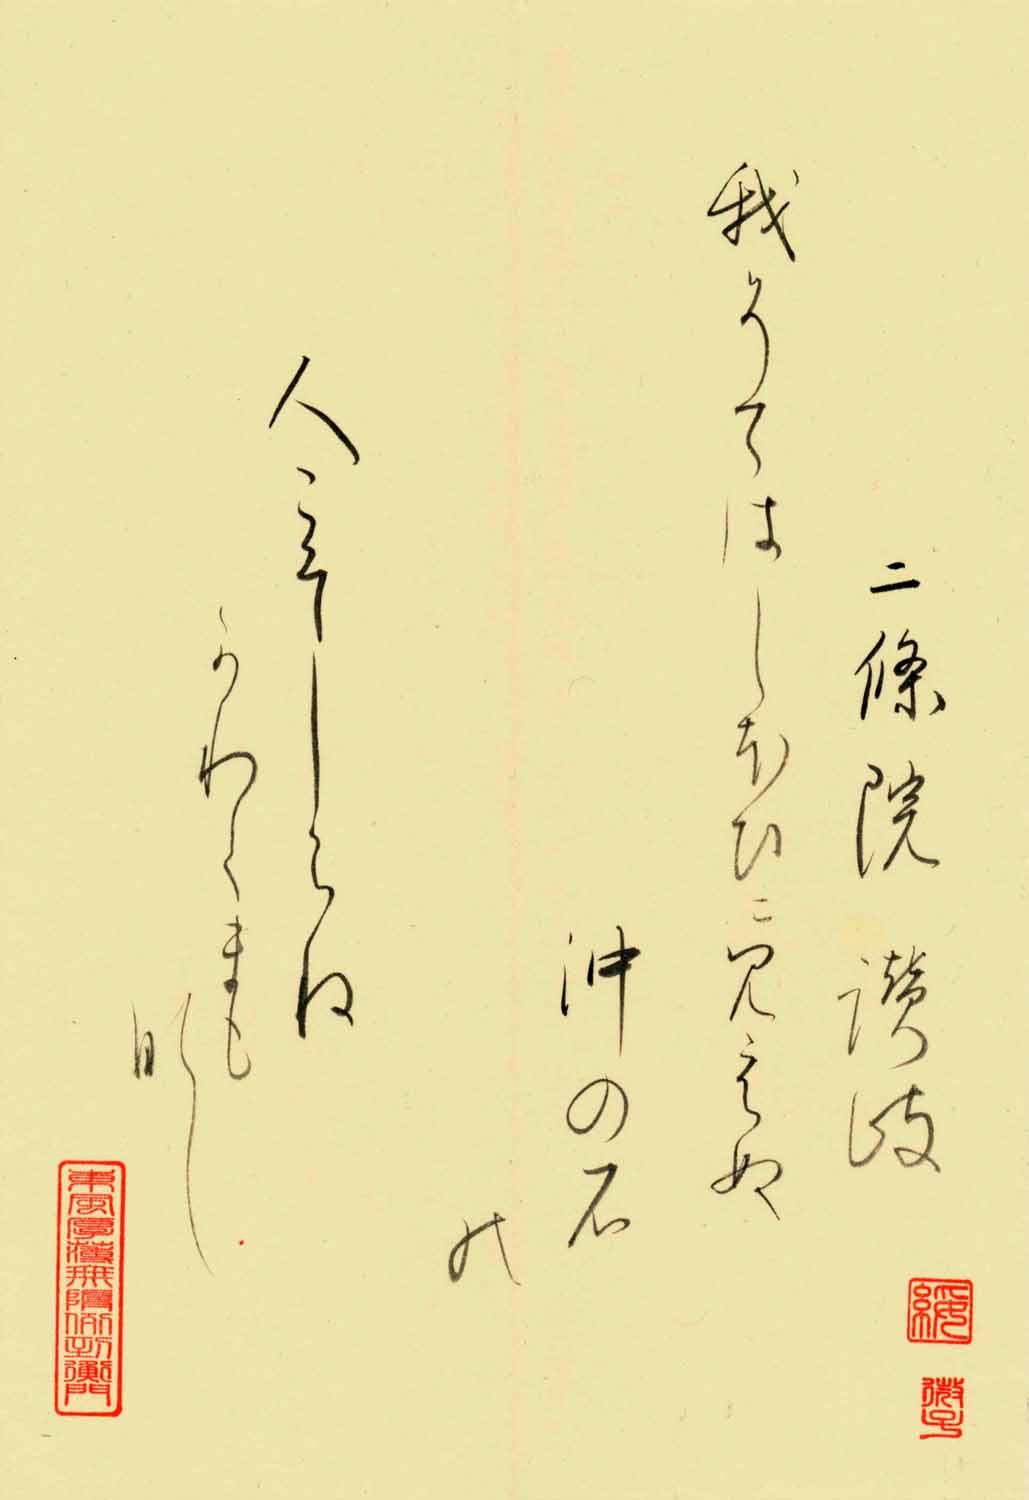 二條院 讃岐
我そてはしほひに見えぬ
沖の石
の
人こそしらね
かわくまも
なし